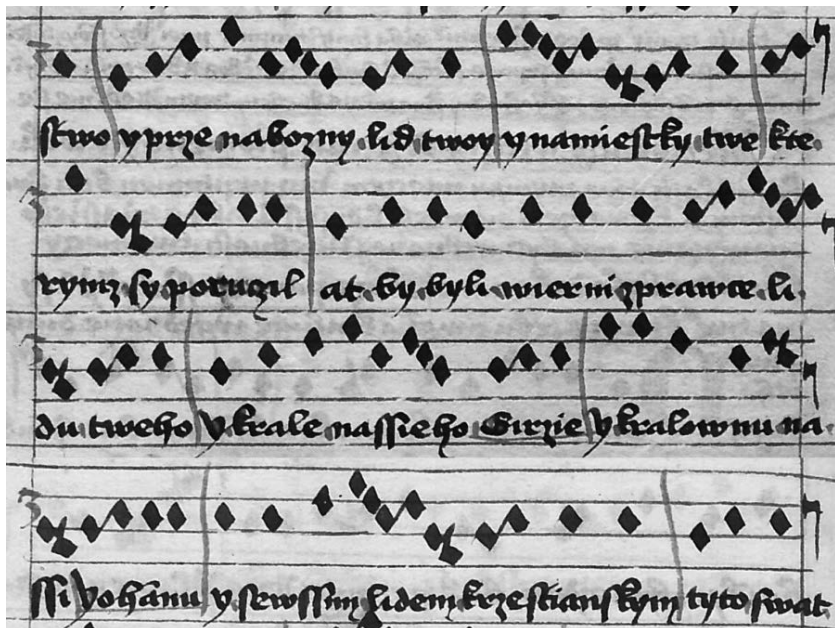 stwo y prze nabozny lid twoy y namiestky twe kte
rymz sy poruczil at by byli wierni zprawce li
du tweho y krale nassieho Girzie y kralownu na
ssi yohānu y sewssim lidem krzestianskym tyto swat